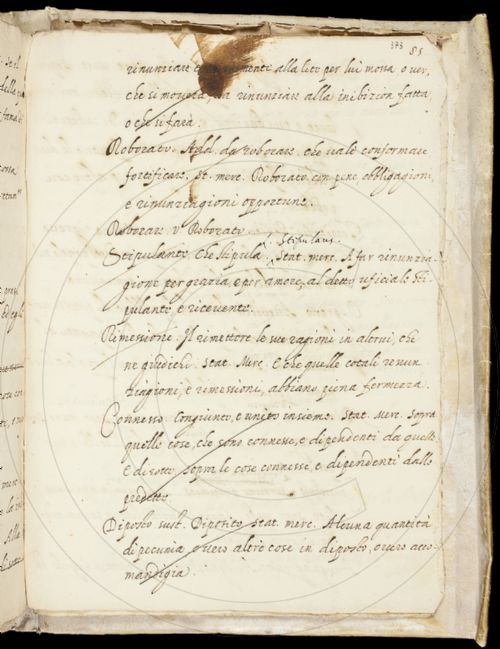 373 85
rinunziare alla lite per lui mossa over,
che si moverà, rinunziare alla inibizion fatta
o che si farà.
Roborato. Add. da roborare. che vale confermare
fortificare. St. merc. Roborato con pene, obbligagioni
e rinunziagioni opportune.
Roborare v. Roborato.
Stipulans.
Stipulante. Che stipula. Stat. merc. A far rinunzia
gione per grazia, e per amore, al detto uficiale sti
pulante, e ricevente.
Rimessione. Il rimettere le sue ragioni in altrui, che
ne giudichi. Stat. Merc. E che quelle cotali renun
ziagioni, e rimessioni, abbiano piena fermezza.
Connesso. Congiunto, e unito insieme. Stat. Merc. Sopra
quelle cose, che sono connesse, e dipendenti da quelle
E di sotto. Sopra le cose connesse, e dipendenti dalle
predette.
Diposto sust. Diposito. Stat. merc. Alcuna quantità
di pecunia overo altre cose in diposto, overo acco-
mandigia.